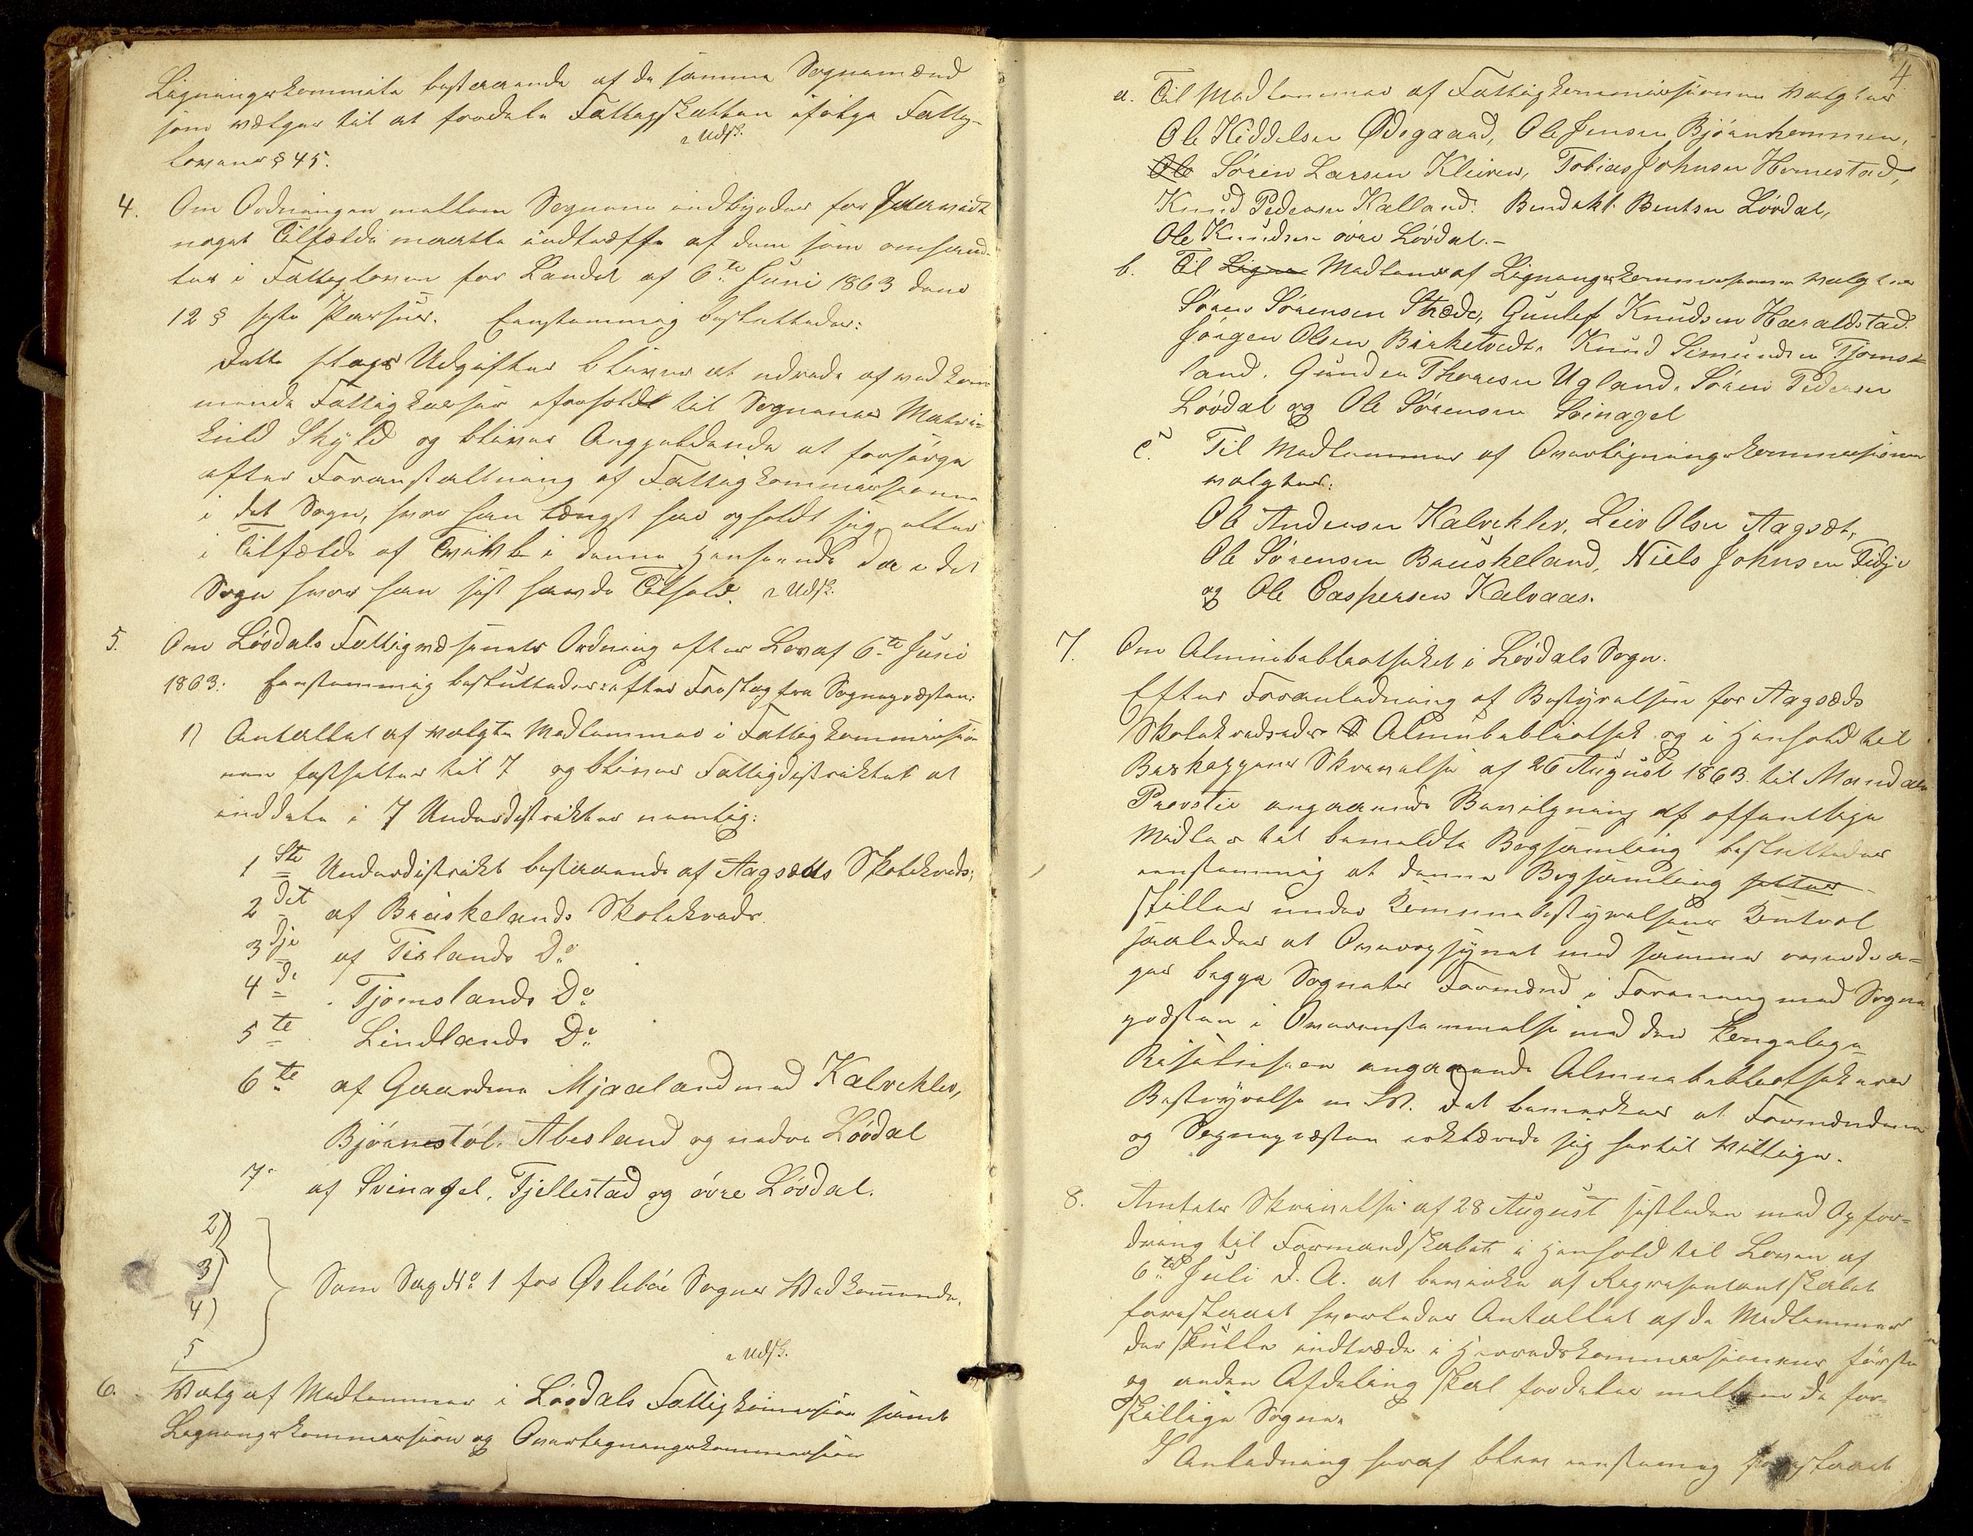 Ligningskommite bestaaende af de samme Sognemænd
som vælges til at fordele Fattigskatten ifølge Fattig-
lovens § 45. Udsk.
4. Om Ordningen mellem Sognene indbyrdes for
noget Tilfælde maatte indtræffe af dem som omhand-
les i Fattigloven for Landet af 6te Juni 1863 dens
12 § siste Passus. Eenstemmig besluttedes:
dette slags Udgifter bliver at udrede af vedkom
mende Fattigkasser iforhold til Sognenes Matri-
kuld Skyld og bliver Angjeldende at forsørge
efter Foranstaltning af Fattigkommissionen
i det Sogn, hvor han længst har opholdt sig eller
i Tilfælde af Tvivl i denne Henseende da i det
Sogn hvor han sist havde Tilhold. Udsk.
5. Om Løvdals Fattigvæsenets Ordning efter Lov af 6te Juni
1863: Eenstemmig besluttedes efter Forslag fra Sognepræsten:
1) Antallet af valgte Medlemmer i Fattigkommission
nen fastsættes til 7 og bliver Fattigdistriktet at
inddele i 7 Underdistrikter nemlig:
1ste Underdistrikt bestaaende af Aagsædts Skolekreds,
2det af Brüskelands Skolekreds.
3dje af Tislands Do
4de " Tjomslands Do
5te Lindlands Do
6te af Gaardene Mjaaland med Kalvehlev,
Bjørnestøl, Abesland og nedre Løvdal
7. af Svinagel, Fjellestad og øvre Løvdal.
2)
3)
Som Sag No 1 for Øslebøe Sogns Vedkommende.
4)
5
Udsk.
6. Valg af Medlemmer i Løvdals Fattigkommission samt
Ligningskommission og Overligningskommission
4
a. Til Medlemmer af Fattigkommissionen valgtes
Ole Kiddelsen Ødegaard, Ole Jensen Bjørnhommen,
Ole Søren Larsen Kleiven, Tobias Johnsen Homestad,
Knud Pedersen Kalland. Bendekt Bentsen Løvdal,
Ole Knudsen øvre Løvdal.-
b. Til Ligne Medlemmer af Ligningskommissionen valgtes
Søren Sørensen Stræde, Gunlef Knudsen Haraldstad.
Jørgen Olsen Birketvedt, Knud Simundsen Tjoms-
land. Gunder Thoresen Ugland. Søren Pedersen
Løvdal og Ole Sørensen Svinagel
c. Til Medlemmer af Overligningskommissionen
valgtes:
Ole Andersen Kalvehlev, Leiv Olsen Aagsæt,
Ole Sørensen Brüskeland, Niels Johnsen Fidje
og Ole Caspersen Kalvaas.
7. Om Almuebibliotheket i Løvdals Sogn.
Efter Foranledning af Bestyrelsen for Aagsæds
Skolekredses S Almuebibliothek og i Henhold til
Biskoppens Skrivelse af 26 August 1863 til Mandals
Provstie angaaende Bevilgning af offentlige
Midler til bemeldte Bogsamling besluttedes
eenstemmig at denne Bogsamling sættes
stilles under Kommunebestyrelsens Kontrol
saaledes at Overopsynet med samme
ges begge Sognets Formænd i Forening med Sogne
præsten i Overensstemmelse med den Kongelige
Resolusion angaaende Almuebibliothekernes
Bestyrelse m. V. Det bemærkes at Formændene
og Sognepræsten erklærede sig hertil villige.
8. Amtets Skrivelse af 28 August sistleden med Opfor-
dring til Formandskabet i Henhold til Loven af
6te Juli d. A. at bevirke af Repræsentantskabet
foreslaaet hvorledes Antallet af de Medlemmer
der skulle indtræde i Herredskommissionens første
og anden Afdeling skal fordeles mellem de for-
skellige Sogne.
I Anledning heraf blev eenstemmig foreslaaet